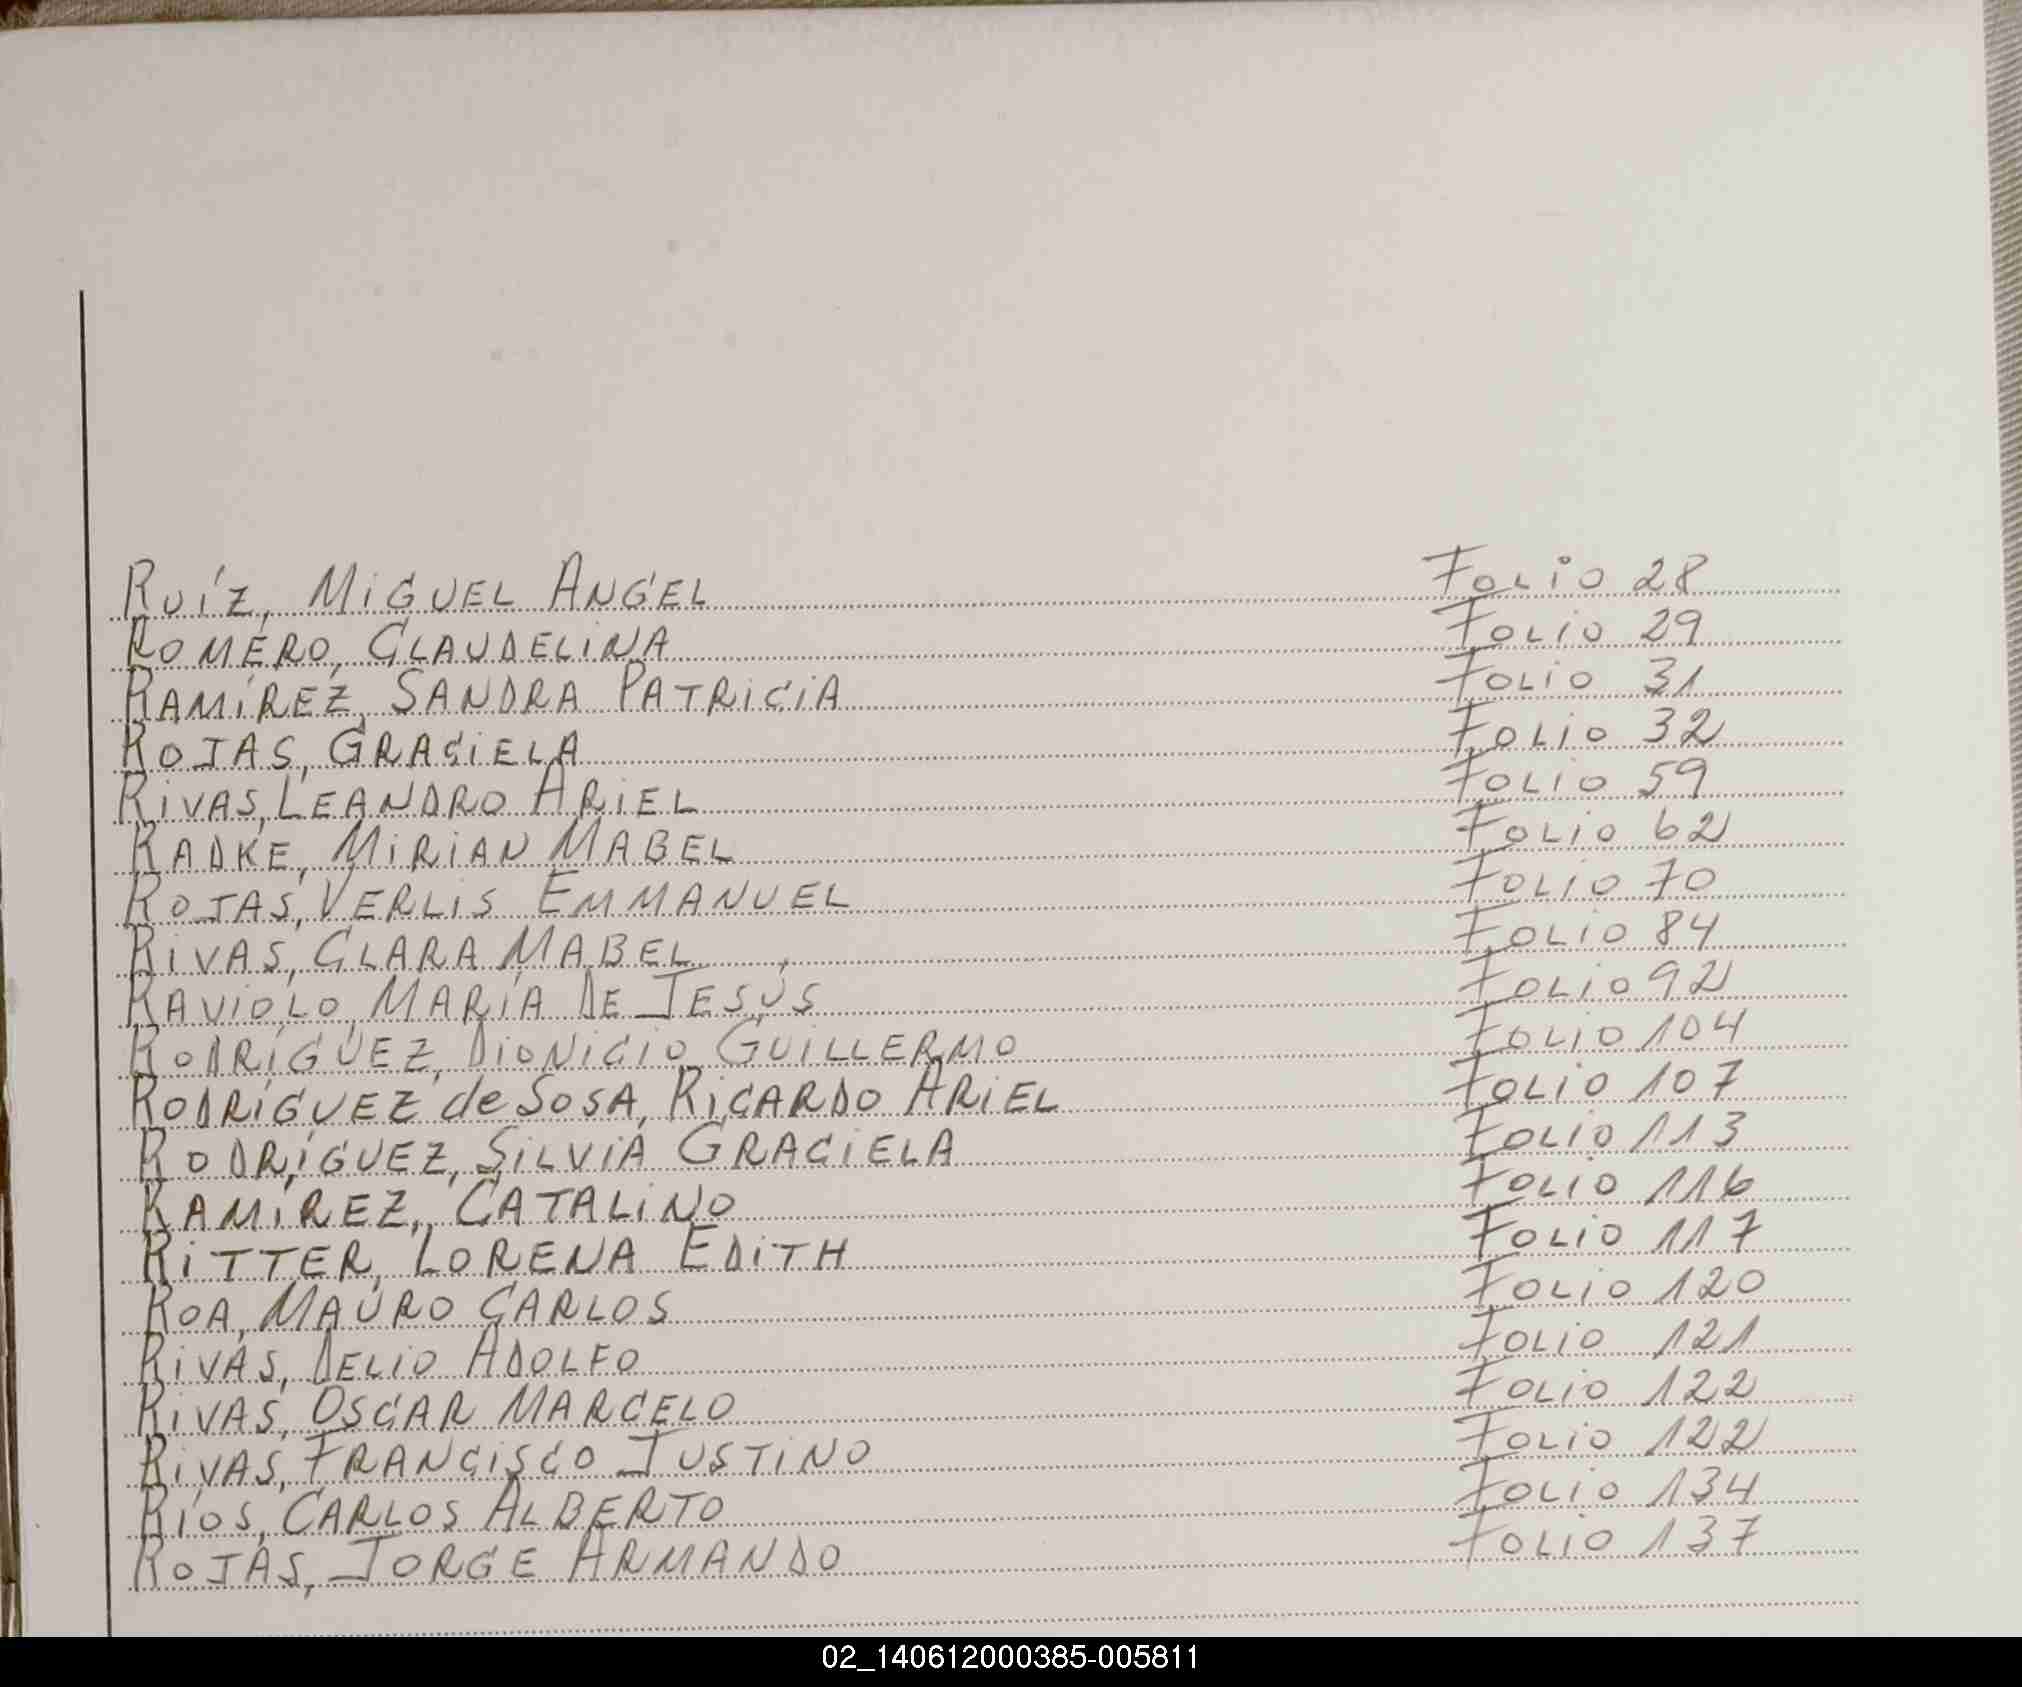 Ruíz, Miguel Angel Folio 28
Romero, Claudelina Folio 29
Ramírez, Sandra Patricia Folio 31
Rojas, Graciela Folio 32
Rivas, Leandro Ariel Folio 59
Radke, Mirian Mabel Folio 62
Rojas, Verlis Emmanuel Folio 70
Rivas, Clara Mabel Folio 84
Raviolo, María De Jesús Folio 92
Rodríguez, Dionicio Guillermo Folio 104
Rodríguez de Sosa, Ricardo Ariel Folio 107
Rodríguez, Silvia Graciela Folio 113
Ramírez, Catalino Folio 116
Ritter, Lorena Edith Folio 117
Roa, Mauro Carlos Folio 120
Rivas, Delio Adolfo Folio 121
Rivas, Oscar Marcelo Folio 122
Rivas, Francisco Justino Folio 122
Ríos, Carlos Alberto Folio 134
Rojas, Jorge Armando Folio 137
02_140612000385-005811